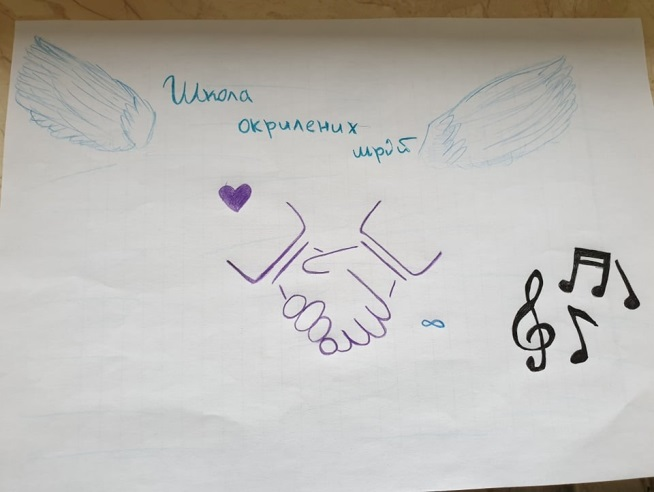 Школа
окрилених
мрій